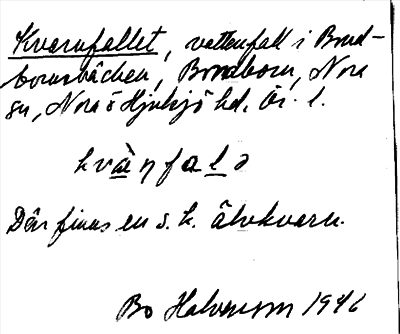 Kvarnfallet, vattenfall i Bond-
bornsbäcken, Bondborn, Nora
sn, Nora o Hjulsjö hd, Ör. l.
kvàɳfalə
Där finns en s. k. älvkvarn.
Bo Halvarson 1946